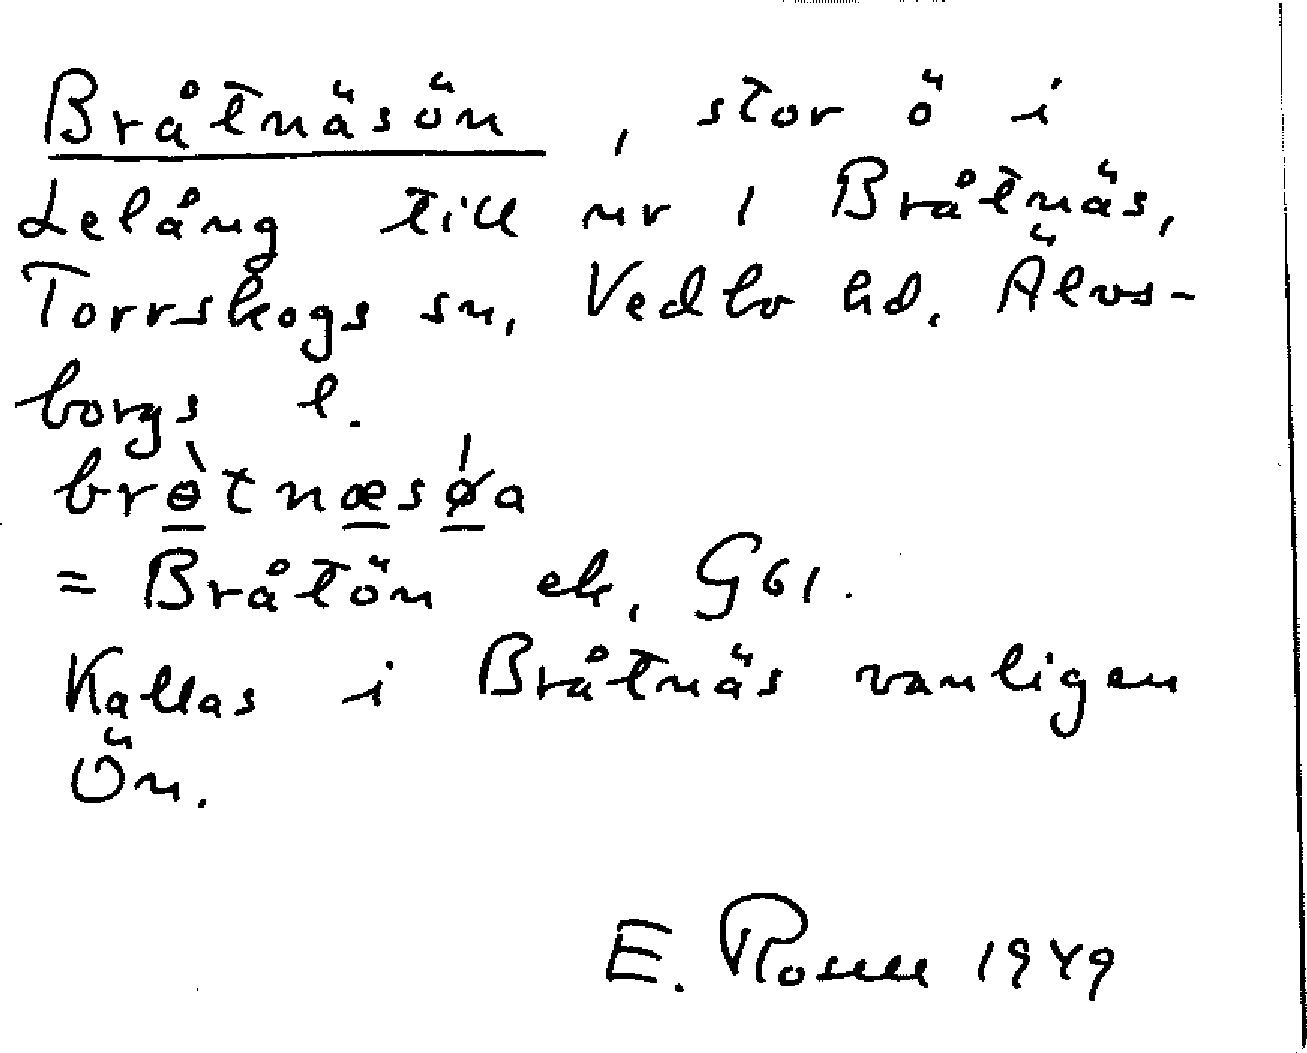 Bråtnäsön, stor ö i
Lelång till nr 1 Bråtnäs,
Torrskogs sn, Vedbo hd, Älvs-
borgs l.
brɵ̀tnæsǿa
= Bråtön ek, G61.
Kallas i Bråtnäs vanligen
Ön.
E. Rosell 1949